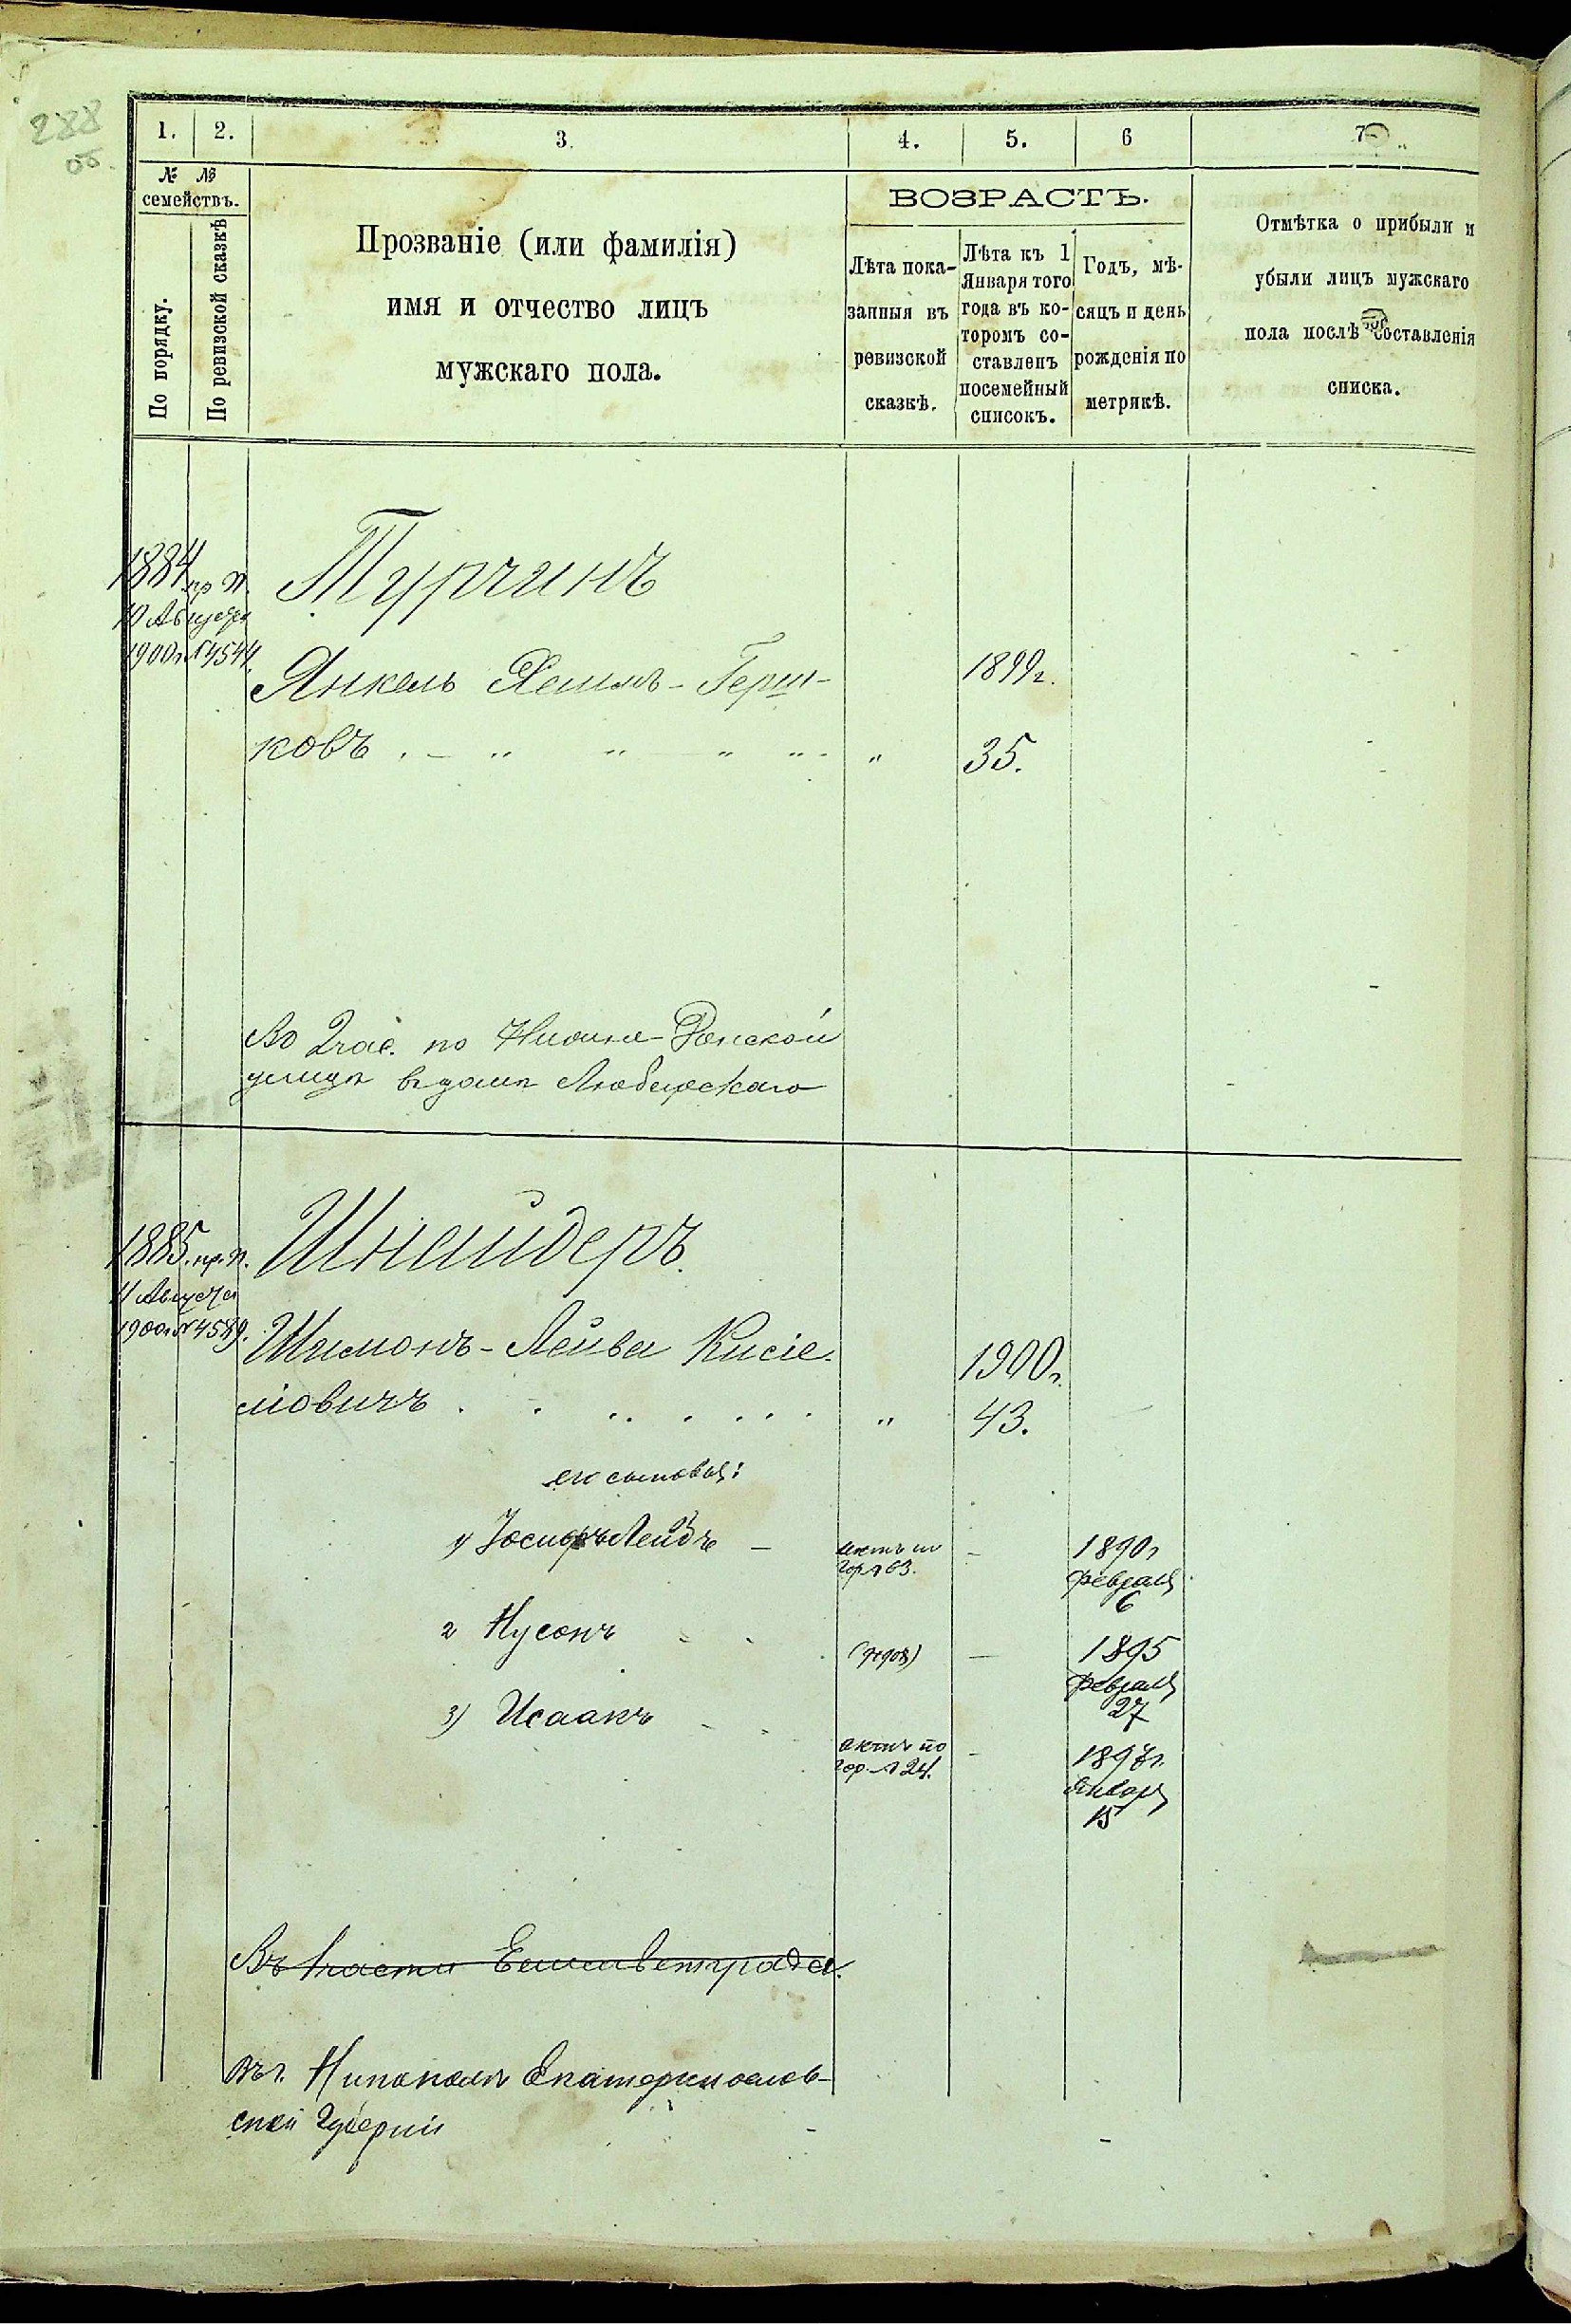 288
об.
1. 2. 3. 4. 5. 6 7
№ №
семействъ.
По порядку.
По ревизской сказкѣ
Прозваніе (или фамилія)
имя и отчество лицъ
мужскаго пола.
ВОЗРАСТЪ.
Лѣта пока-
занныя въ
ревизской
сказкѣ.
Лѣта къ 1
Января того
года въ ко-
торомъ со-
ставленъ
посемейный
списокъ.
Годъ, мѣ-
сяцъ и день
рожденія по
метрикѣ.
Отмѣтка о прибыли и
убыли лицъ мужскаго
пола послѣ составленія
списка.
1884 пр п.
10 Августа
1900г. №4544.
Турчинъ
Янкель Хаимъ-Герш-
1899г.
ковъ . - „ „ „ „ „
35.
Во 2 час. по Нижне-Донской
улицѣ въ домѣ
1885. пр. п.
11 Августа
1900г. №4589.
Шнейдеръ.
Шимонъ-Лейва Кисіе-
1900г.
ліовичъ . . . „
43.
его сыновья:
1) Іосифъ Лейбъ -
актъ по
гор. №63.
-
1890г
февраля
6
2 Нусонъ
-
1895
февраля
27
3) Исаакъ
актъ по
гор. №24.
-
1897г.
Января
15
Въ 1 части Елисаветграда.
Въ г. Никополѣ Екатеринослав-
ской Губерніи